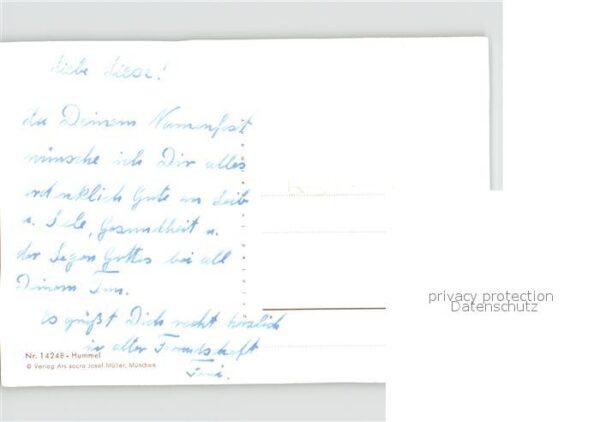 Liebe Liesl!
Zu Deinem Namenfest
wünsche ich Dir alles
erdenklich Gute an Leib
u. Sele, Gesundheit u.
der Segen Gottes bei all
Deinem Tun.
Es grüßt Dich recht herzlich
in alter Freundschaft
Nr. 14248 - Hummel
© Verlag Ars sacra Josef Müller, München
privacy protection
Datenschutz